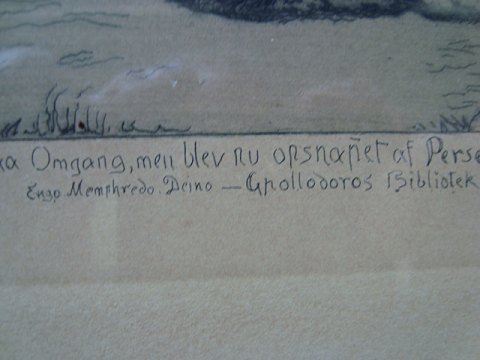 ka Omgang, men blev nu opsnappet af Perse
Enyo Memphredo. Deino — Apollodoros Bibliotek